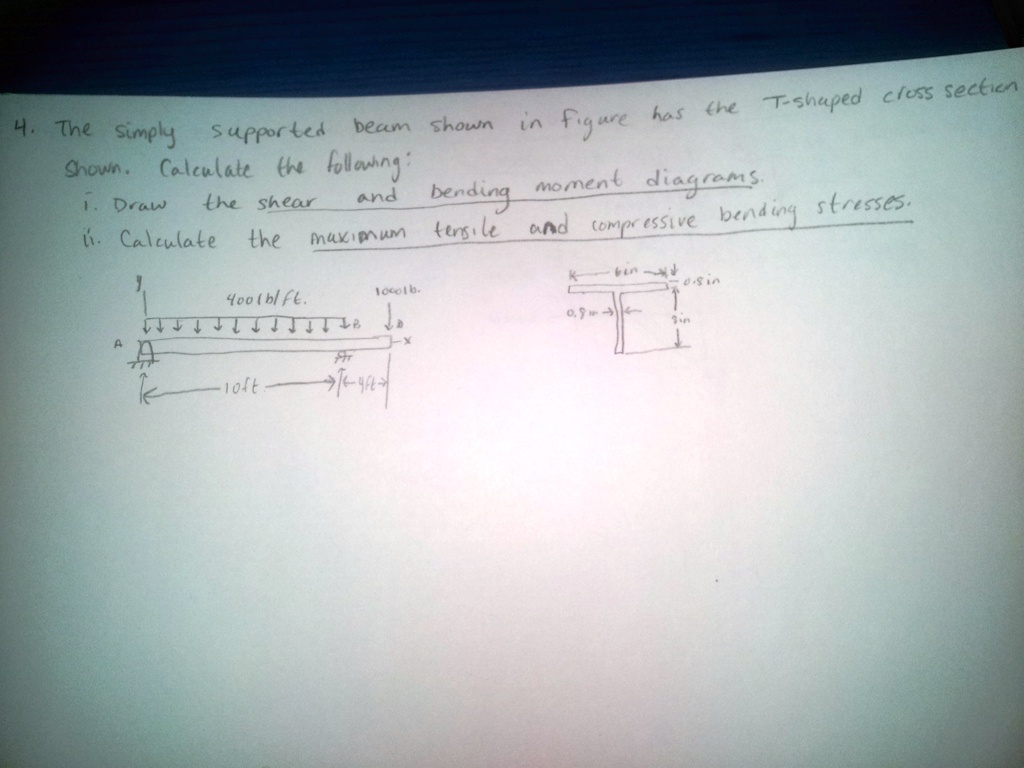 4. The simply supported beam shown in figure has the T-shaped cross section
shown. Calculate the following:
i. Draw the shear and bending moment diagrams.
ii. Calculate the maximum tensile and compressive bending stresses.
y
400 lb/ft.
1000lb.
B
D
A
x
10ft
4ft
6in
0.8in
8in